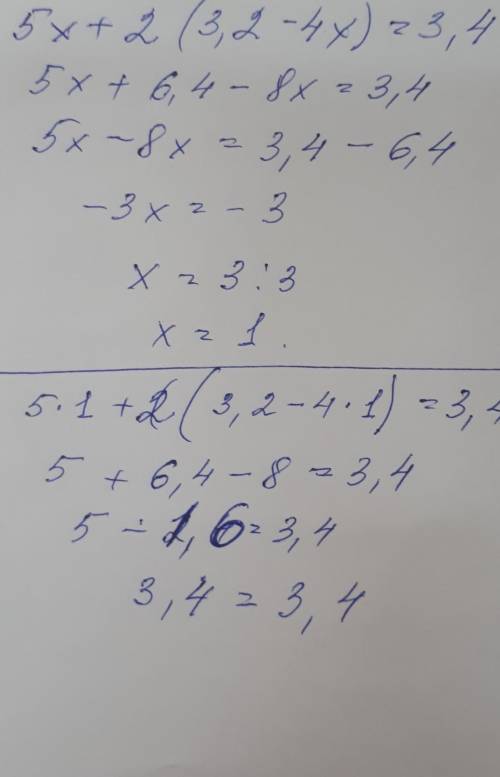 5x + 2 (3,2 - 4x) = 3,4
5x + 6,4 - 8x = 3,4
5x - 8x = 3,4 - 6,4
-3x = - 3
x = 3 : 3
x = 1 .
5 · 1 + 2 ( 3,2 - 4 · 1 ) = 3,4
5 + 6,4 - 8 = 3,4
5 - 1,6 = 3,4
3,4 = 3,4